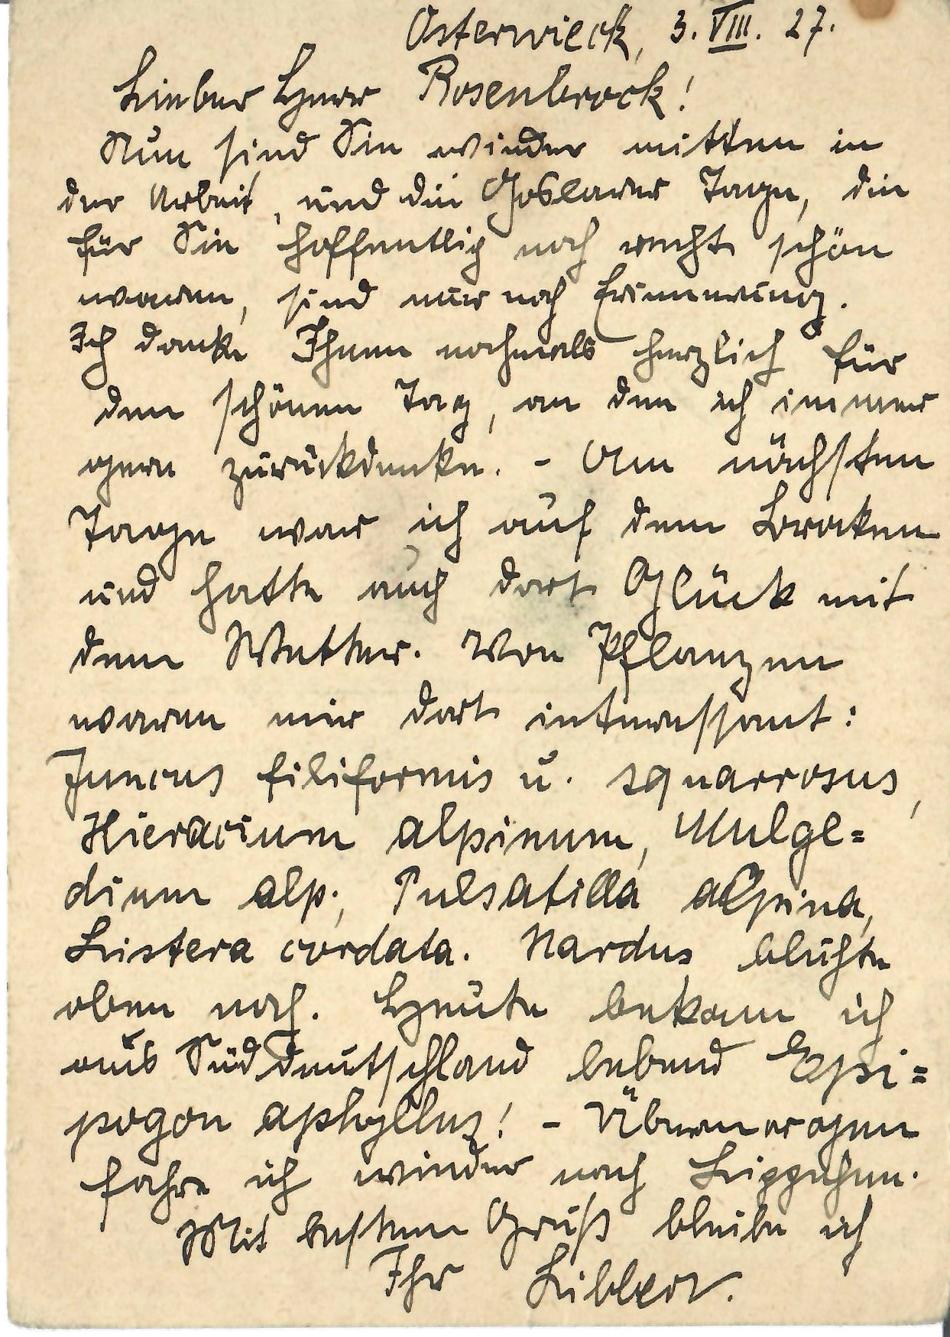 Osterwieck, 3. VIII. 27.
Lieber Herr Rosenbrock!
Nun sind Sie wieder mitten in
der Arbeit, und die Goslarer Tage, die
für Sie hoffentlich noch recht schön
waren, sind nur noch Erinnerung.
Ich danke Ihnen nochmals herzlich für
den schönen Tag, an den ich immer
gern zurückdenke. - Am nächsten
Tage war ich auf dem Brocken
und hatte auch dort Glück mit
dem Wetter. Von Pflanzen
waren mir dort interessant:
Juncus filiformis u. squarrosus,
Hieracium alpinum, Mulge=
dium alp., Pulsatilla alpina,
Listera cordata. Nardus blühte
oben noch. Heute bekam ich
aus Süddeutschland lebend Epi=
pogon aphyllus! - Übermorgen
fahre ich wieder nach
Mit bestem Gruß bleibe ich
Ihr